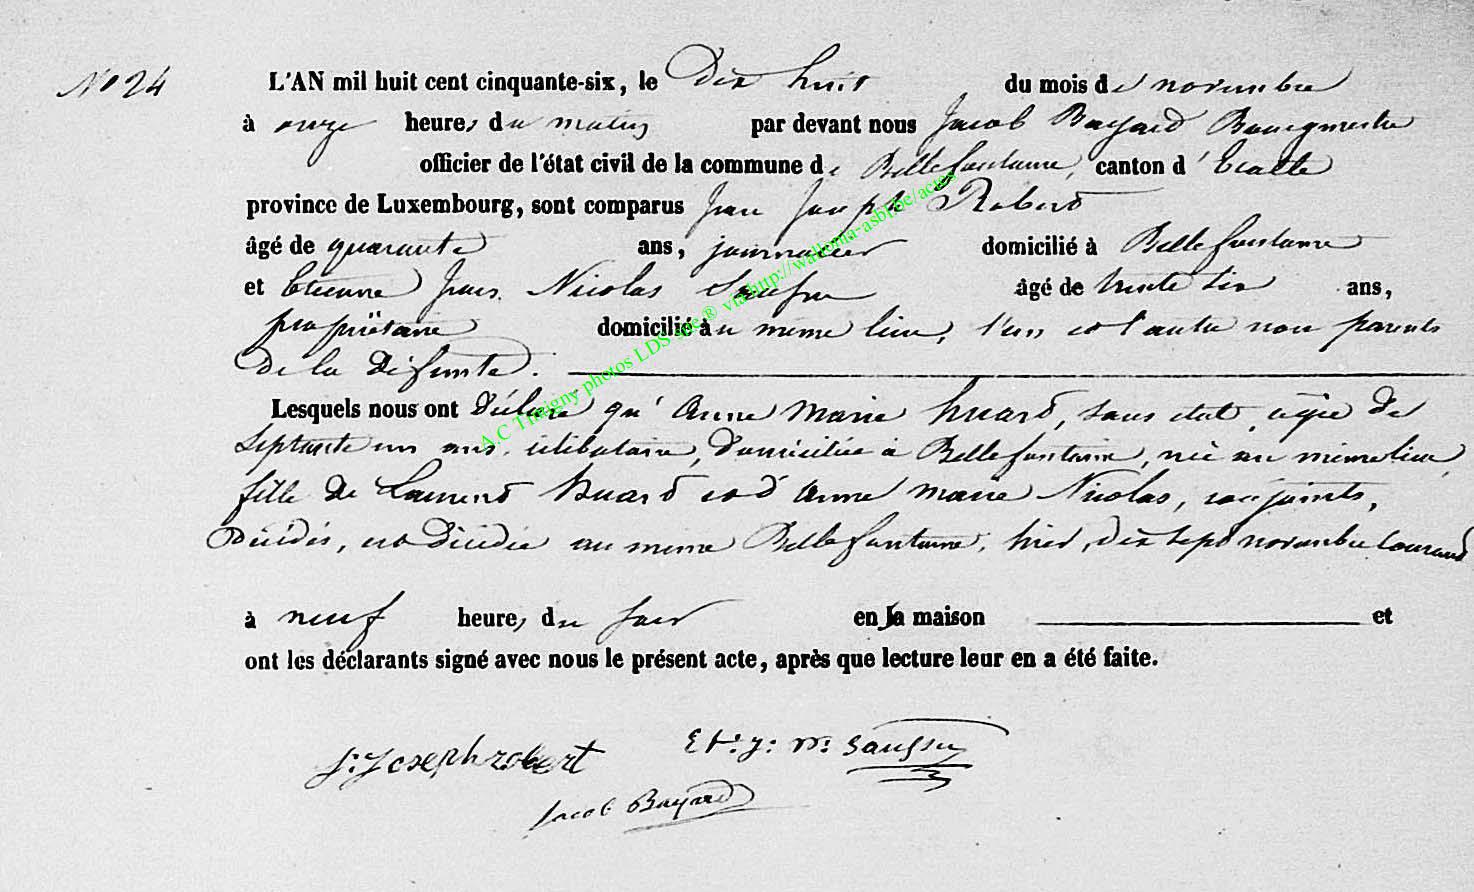 No 24
L'AN mil huit cent cinquante-six, le Dix huit du mois de novembre
à onze heures du matin par devant nous Jacob Bayard Bourgmestre
officier de l'état civil de la commune de Bellefontaine, canton d'Etalle
province de Luxembourg, sont comparus Jean Joseph Robert
âgé de quarante ans, journalier domicilié à Bellefontaine
et Etienne Jean Nicolas âgé de trente six ans,
propriétaire domicilié au même lieu, l'un et l'autre non parents
de la défunte.
Lesquels nous ont déclaré qu'Anne Marie huard, sans état, agée de
septante un ans, célibataire, domiciliée à Bellefontaine, née au même lieu,
fille de Laurent huard et d'Anne Marie Nicolas, conjoints,
Décédés, est décédée au même Bellefontaine, hier, dix sept novembre courant
à neuf heures du soir en sa maison et
ont les déclarants signé avec nous le présent acte, après que lecture leur en a été faite.
J: Joseph robert Et: J: N:
Jacob Bayard
A.C Thirigny photos LDS soc.® via http://wallonia-asbl.be/actes